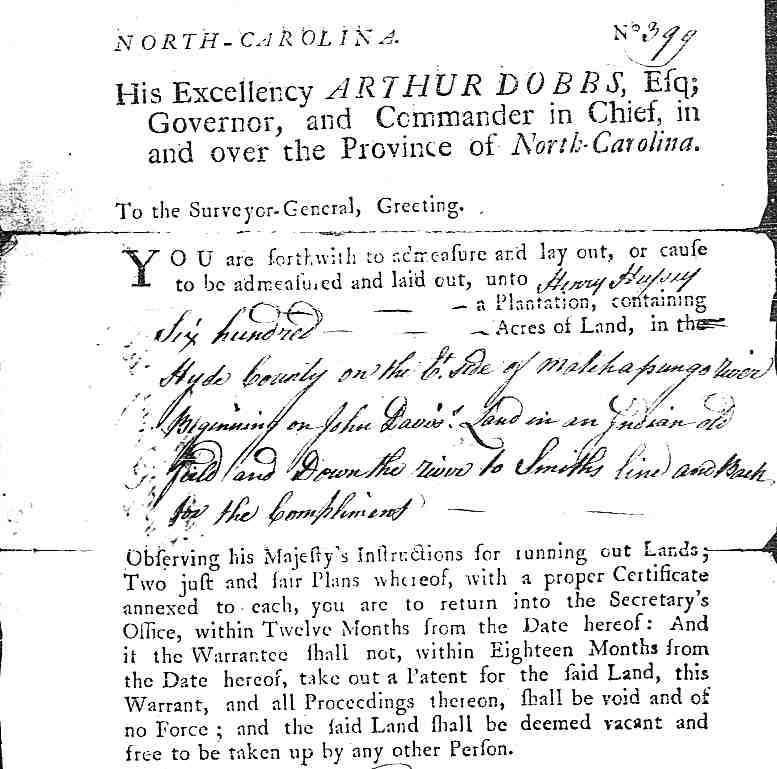 NORTH-CAROLINA. No 399
His Excellency ARTHUR DOBBS, Eſq;
Governor, and Commander in Chief, in
and over the Province of North-Carolina.
To the Surveyor-General, Greeting.
YOU are forthwith to admeaſure and lay out, or cauſe
to be admeaſured and laid out, unto Henry Hussey
— a Plantation, containing
Six hundred — — — Acres of Land, in the
Hyde County on the Et. Side of Matchapungo river
Beginning on John Davis's Land in an Indian old
field and Down the river to Smiths line and Back
for the Compliment — —
Obſerving his Majeſty's Inſtructions for running out Lands;
Two juſt and fair Plans whereof, with a proper Certificate
annexed to each, you are to return into the Secretary's
Office, within Twelve Months from the Date hereof: And
if the Warrantee ſhall not, within Eighteen Months from
the Date hereof, take out a Patent for the ſaid Land, this
Warrant, and all Proceedings thereon, ſhall be void and of
no Force; and the ſaid Land ſhall be deemed vacant and
free to be taken up by any other Perſon.